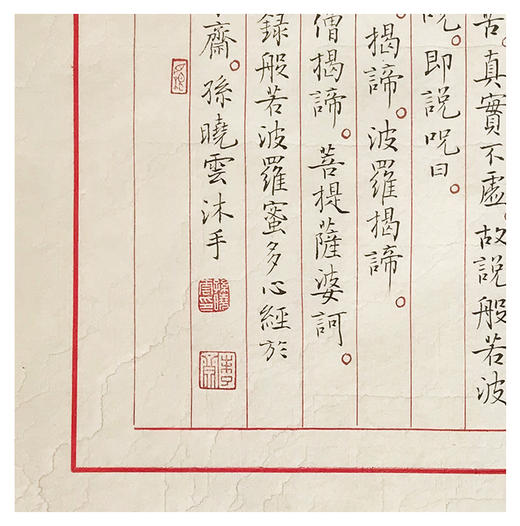 苦。真實不虛。故說般若波
呪。即說呪曰。
揭諦。波羅揭諦。
僧揭諦。菩提薩婆訶。
錄般若波羅蜜多心經於
齋。孫曉雲沐手